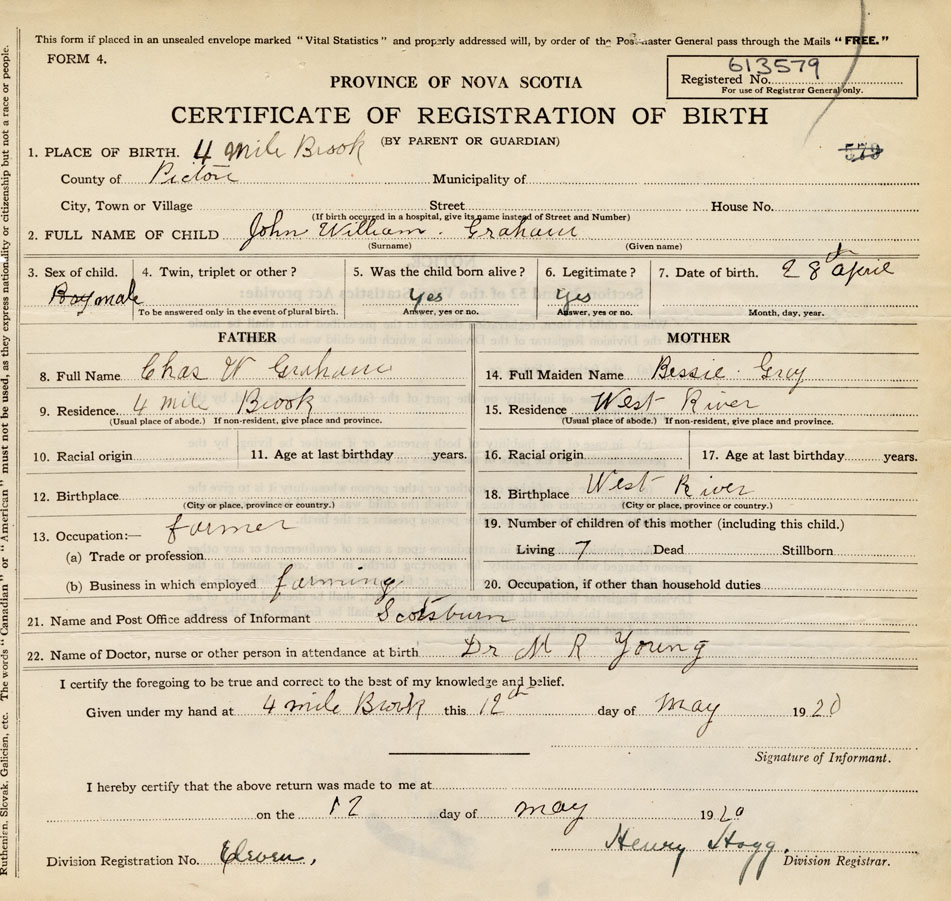 This form if placed in an unsealed envelope marked "Vital Statistics" and properly addressed will, by order of the Postmaster General pass through the Mails "FREE."
FORM 4.
613579
Registered No.
For use of Registrar General only.
PROVINCE OF NOVA SCOTIA
CERTIFICATE OF REGISTRATION OF BIRTH
(BY PARENT OR GUARDIAN)
579
1. PLACE OF BIRTH. 4 mile Brook
County of Pictou Municipality of
City, Town or Village Street House No.
(If birth occurred in a hospital, give its name instead of Street and Number)
2. FULL NAME OF CHILD John William. Graham
(Surname) (Given name)
3. Sex of child. 4. Twin, triplet or other? 5. Was the child born alive? 6. Legitimate? 7. Date of birth. 28th April
Boy male Yes Yes
To be answered only in the event of plural birth. Answer, yes or no. Answer, yes or no. Month, day, year.
FATHER
8. Full Name Chas W Graham
9. Residence. 4 mile Brook
(Usual place of abode.) If non-resident, give place and province.
10. Racial origin 11. Age at last birthday years.
12. Birthplace
(City or place, province or country.)
13. Occupation:— farmer
(a) Trade or profession
(b) Business in which employed farming
MOTHER
14. Full Maiden Name Bessie. Gray
15. Residence West River
(Usual place of abode.) If non-resident, give place and province.
16. Racial origin 17. Age at last birthday years.
18. Birthplace West River
(City or place, province or country.)
19. Number of children of this mother (including this child.)
Living 7 Dead Stillborn
20. Occupation, if other than household duties
21. Name and Post Office address of Informant Scotsburn
22. Name of Doctor, nurse or other person in attendance at birth Dr M R Young
I certify the foregoing to be true and correct to the best of my knowledge and belief.
Given under my hand at 4 mile Brook this 12th day of May 1920
Signature of Informant.
I hereby certify that the above return was made to me at
on the 12 day of may 1920
Henry Hogg.
Division Registration No. Eleven, Division Registrar.
Ruthenien, Slovak, Galician, etc. The words "Canadian" or "American" must not be used, as they express nationality or citizenship but not a race or people.